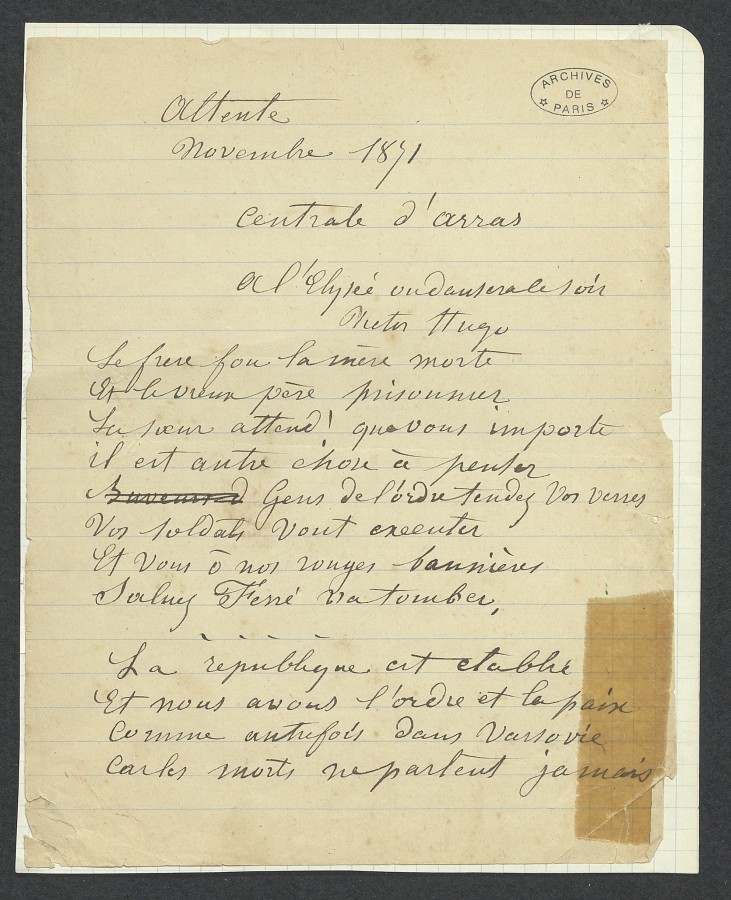 ARCHIVES
DE
PARIS
Attente
Novembre 1871
Centrale d'arras
A l'Elysée on dansera le soir
Victor Hugo
Le frere fou la mère morte
Et le vieux père prisonnier
La sœur attend ! que vous importe
il est autre chose à penser
Gens de l'ordre tendez vos verres
Vos soldats vont executer
Et vous ô nos rouges bannières
Saluez Ferré va tomber,
La république est etablie
Et nous avons l'ordre et la paix
Comme autrefois dans Varsovie
Car les morts ne parlent jamais